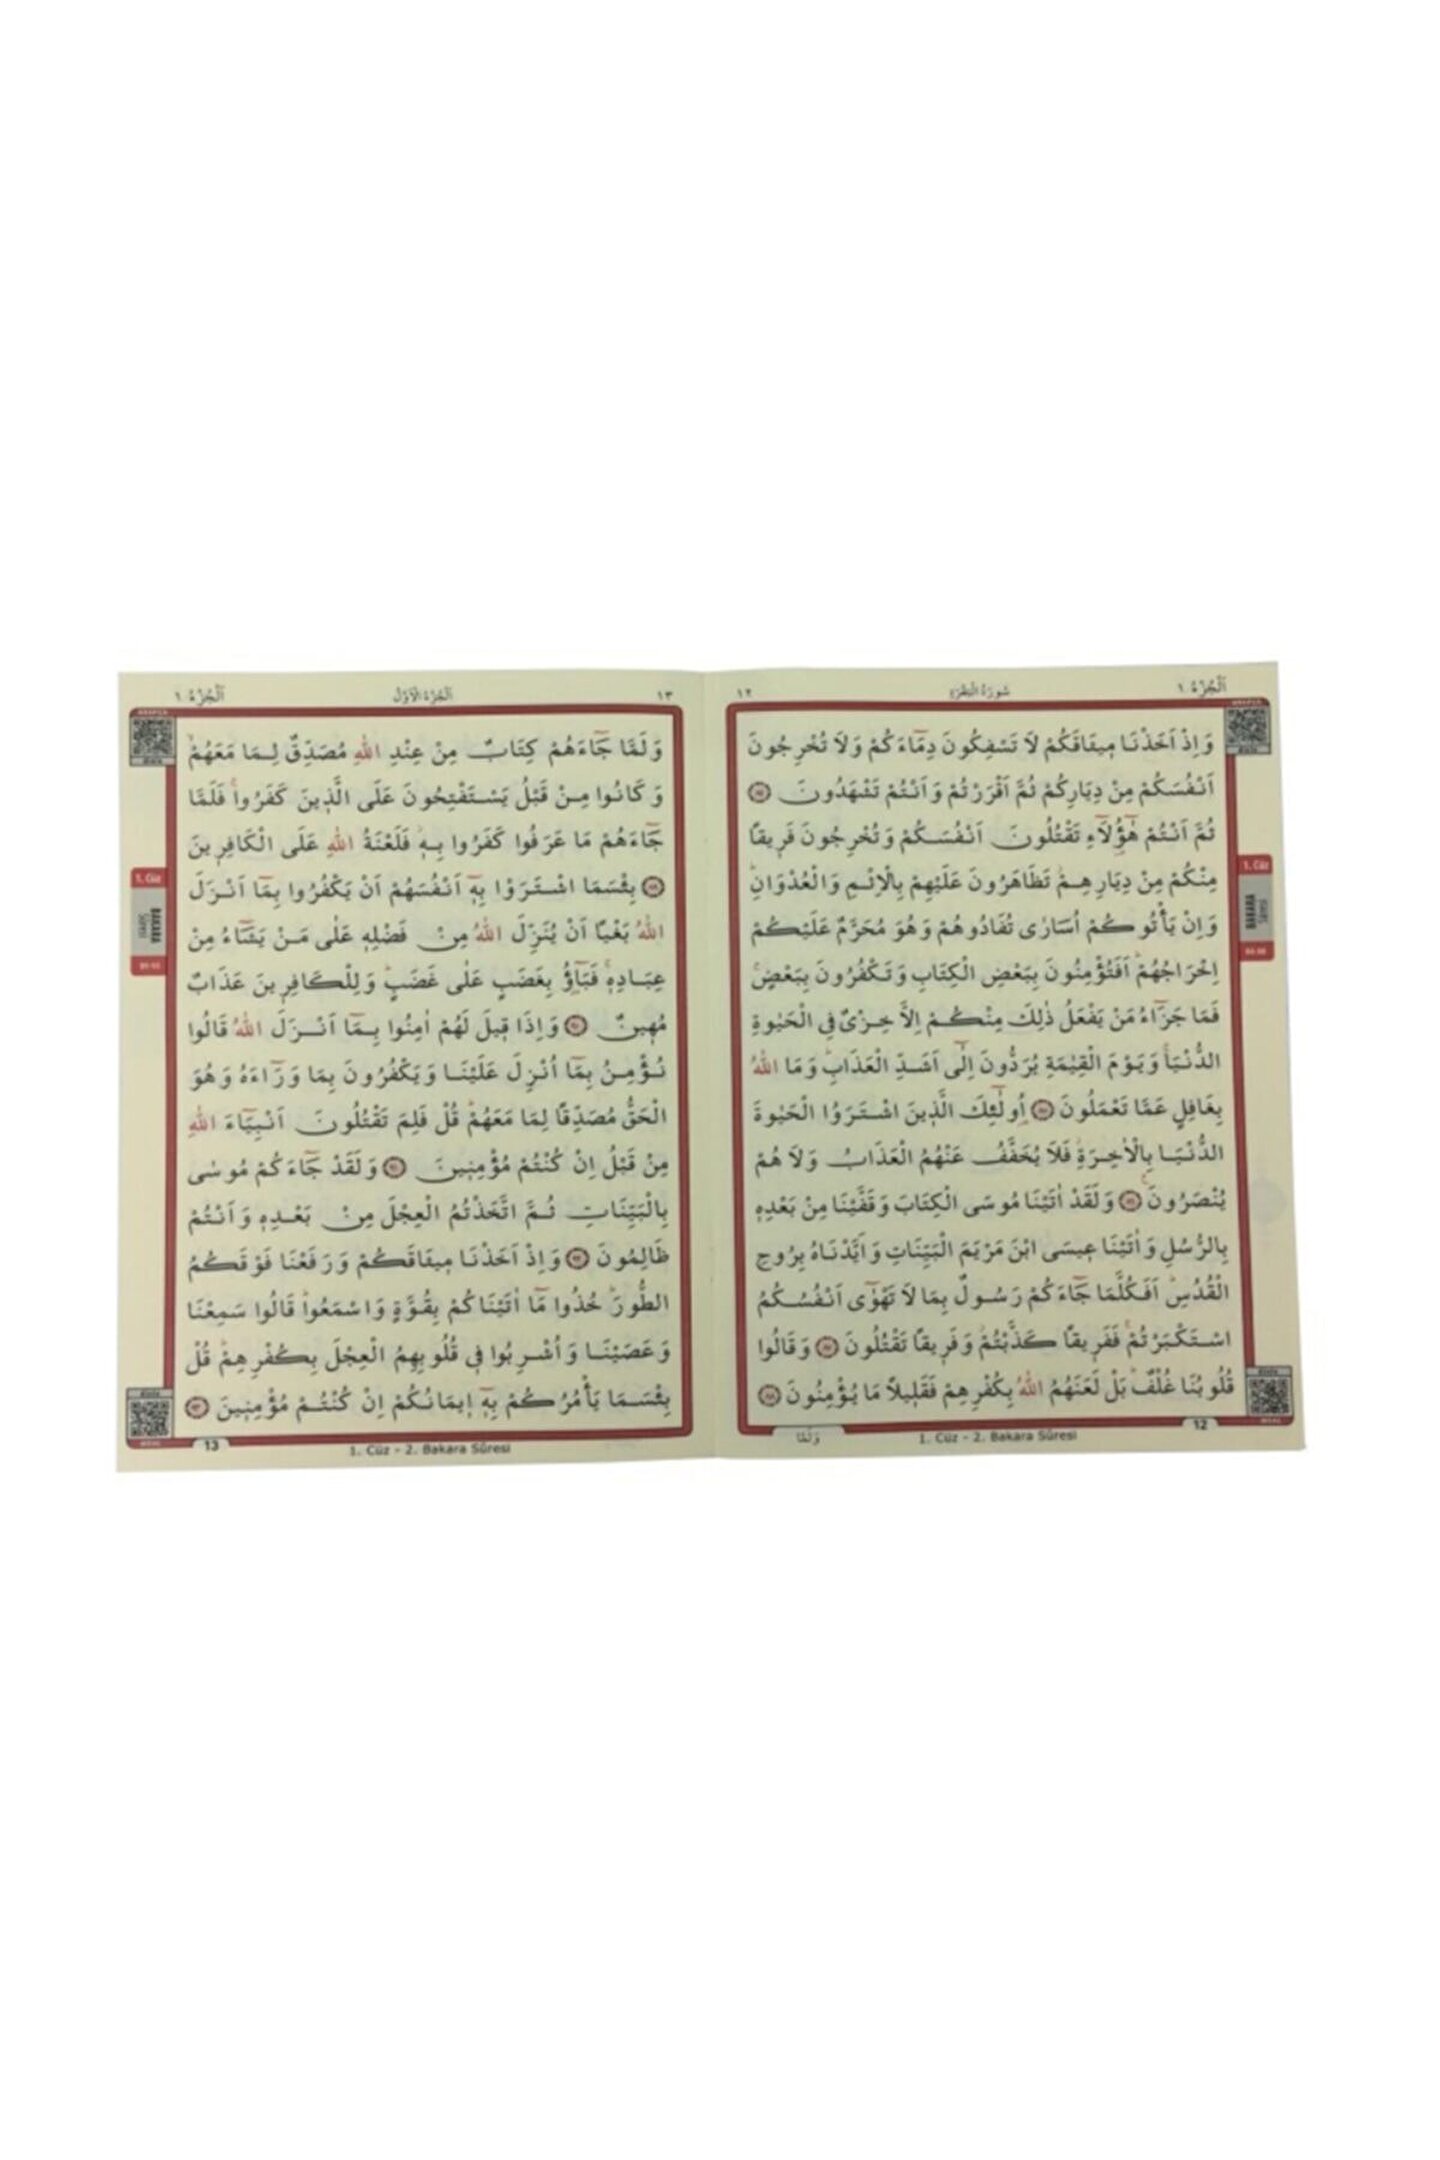 اَلْجُزْءُ ١
سُورَةُ الْبَقَرَةِ
١٢
وَاِذْ اَخَذْنَا مِيثَاقَكُمْ لَا تَسْفِكُونَ دِمَٓاءَكُمْ وَلَا تُخْرِجُونَ
اَنْفُسَكُمْ مِنْ دِيَارِكُمْ ثُمَّ اَقْرَرْتُمْ وَاَنْتُمْ تَشْهَدُونَ ﴿٨٤﴾
ثُمَّ اَنْتُمْ هٰٓؤُ۬لَٓاءِ تَقْتُلُونَ اَنْفُسَكُمْ وَتُخْرِجُونَ فَرِيقًا
مِنْكُمْ مِنْ دِيَارِهِمْۘ تَظَاهَرُونَ عَلَيْهِمْ بِالْاِثْمِ وَالْعُدْوَانِۜ
وَاِنْ يَأْتُوكُمْ اُسَارٰى تُفَادُوهُمْ وَهُوَ مُحَرَّمٌ عَلَيْكُمْ
اِخْرَاجُهُمْۜ اَفَتُؤْمِنُونَ بِبَعْضِ الْكِتَابِ وَتَكْفُرُونَ بِبَعْضٍۚ
فَمَا جَزَٓاءُ مَنْ يَفْعَلُ ذٰلِكَ مِنْكُمْ اِلَّا خِزْىٌ فِي الْحَيٰوةِ
الدُّنْيَاۚ وَيَوْمَ الْقِيٰمَةِ يُرَدُّونَ اِلٰٓى اَشَدِّ الْعَذَابِۜ وَمَا اللّٰهُ
بِغَافِلٍ عَمَّا تَعْمَلُونَ ﴿٨٥﴾ اُو۬لٰٓئِكَ الَّذِينَ اشْتَرَوُا الْحَيٰوةَ
الدُّنْيَا بِالْاٰخِرَةِۘ فَلَا يُخَفَّفُ عَنْهُمُ الْعَذَابُ وَلَا هُمْ
يُنْصَرُونَ۟ ﴿٨٦﴾ وَلَقَدْ اٰتَيْنَا مُوسَى الْكِتَابَ وَقَفَّيْنَا مِنْ بَعْدِهِ
بِالرُّسُلِ وَاٰتَيْنَا عِيسَى ابْنَ مَرْيَمَ الْبَيِّنَاتِ وَاَيَّدْنَاهُ بِرُوحِ
الْقُدُسِۜ اَفَكُلَّمَا جَٓاءَكُمْ رَسُولٌ بِمَا لَا تَهْوٰٓى اَنْفُسُكُمُ
اسْتَكْبَرْتُمْۚ فَفَرِيقًا كَذَّبْتُمْۘ وَفَرِيقًا تَقْتُلُونَ ﴿٨٧﴾ وَقَالُوا
قُلُوبُنَا غُلْفٌۜ بَلْ لَعَنَهُمُ اللّٰهُ بِكُفْرِهِمْ فَقَلِيلًا مَا يُؤْمِنُونَ ﴿٨٨﴾
12
1. Cüz - 2. Bakara Sûresi
وَلَمَّا
1. Cüz
اَلْجُزْءُ ١
اَلْجُزْءُ الْاَوَّلُ
١٣
وَلَمَّا جَٓاءَهُمْ كِتَابٌ مِنْ عِنْدِ اللّٰهِ مُصَدِّقٌ لِمَا مَعَهُمْۙ
وَكَانُوا مِنْ قَبْلُ يَسْتَفْتِحُونَ عَلَى الَّذِينَ كَفَرُواۚ فَلَمَّا
جَٓاءَهُمْ مَا عَرَفُوا كَفَرُوا بِهِۘ فَلَعْنَةُ اللّٰهِ عَلَى الْكَافِرِينَ
﴿٨٩﴾ بِئْسَمَا اشْتَرَوْا بِهِٓ اَنْفُسَهُمْ اَنْ يَكْفُرُوا بِمَٓا اَنْزَلَ
اللّٰهُ بَغْيًا اَنْ يُنَزِّلَ اللّٰهُ مِنْ فَضْلِهِ عَلٰى مَنْ يَشَٓاءُ مِنْ
عِبَادِهِۚ فَبَٓاؤُ۫ بِغَضَبٍ عَلٰى غَضَبٍۜ وَلِلْكَافِرِينَ عَذَابٌ
مُهِينٌ ﴿٩٠﴾ وَاِذَا قِيلَ لَهُمْ اٰمِنُوا بِمَٓا اَنْزَلَ اللّٰهُ قَالُوا
نُؤْمِنُ بِمَٓا اُنْزِلَ عَلَيْنَا وَيَكْفُرُونَ بِمَا وَرَٓاءَهُ وَهُوَ
الْحَقُّ مُصَدِّقًا لِمَا مَعَهُمْۜ قُلْ فَلِمَ تَقْتُلُونَ اَنْبِيَٓاءَ اللّٰهِ
مِنْ قَبْلُ اِنْ كُنْتُمْ مُؤْمِنِينَ ﴿٩١﴾ وَلَقَدْ جَٓاءَكُمْ مُوسٰى
بِالْبَيِّنَاتِ ثُمَّ اتَّخَذْتُمُ الْعِجْلَ مِنْ بَعْدِهِ وَاَنْتُمْ
ظَالِمُونَ ﴿٩٢﴾ وَاِذْ اَخَذْنَا مِيثَاقَكُمْ وَرَفَعْنَا فَوْقَكُمُ
الطُّورَۜ خُذُوا مَٓا اٰتَيْنَاكُمْ بِقُوَّةٍ وَاسْمَعُواۜ قَالُوا سَمِعْنَا
وَعَصَيْنَا وَاُشْرِبُوا فِي قُلُوبِهِمُ الْعِجْلَ بِكُفْرِهِمْۜ قُلْ
بِئْسَمَا يَأْمُرُكُمْ بِهِٓ اِيمَانُكُمْ اِنْ كُنْتُمْ مُؤْمِنِينَ ﴿٩٣﴾
13
1. Cüz - 2. Bakara Sûresi
1. Cüz
BAKARA